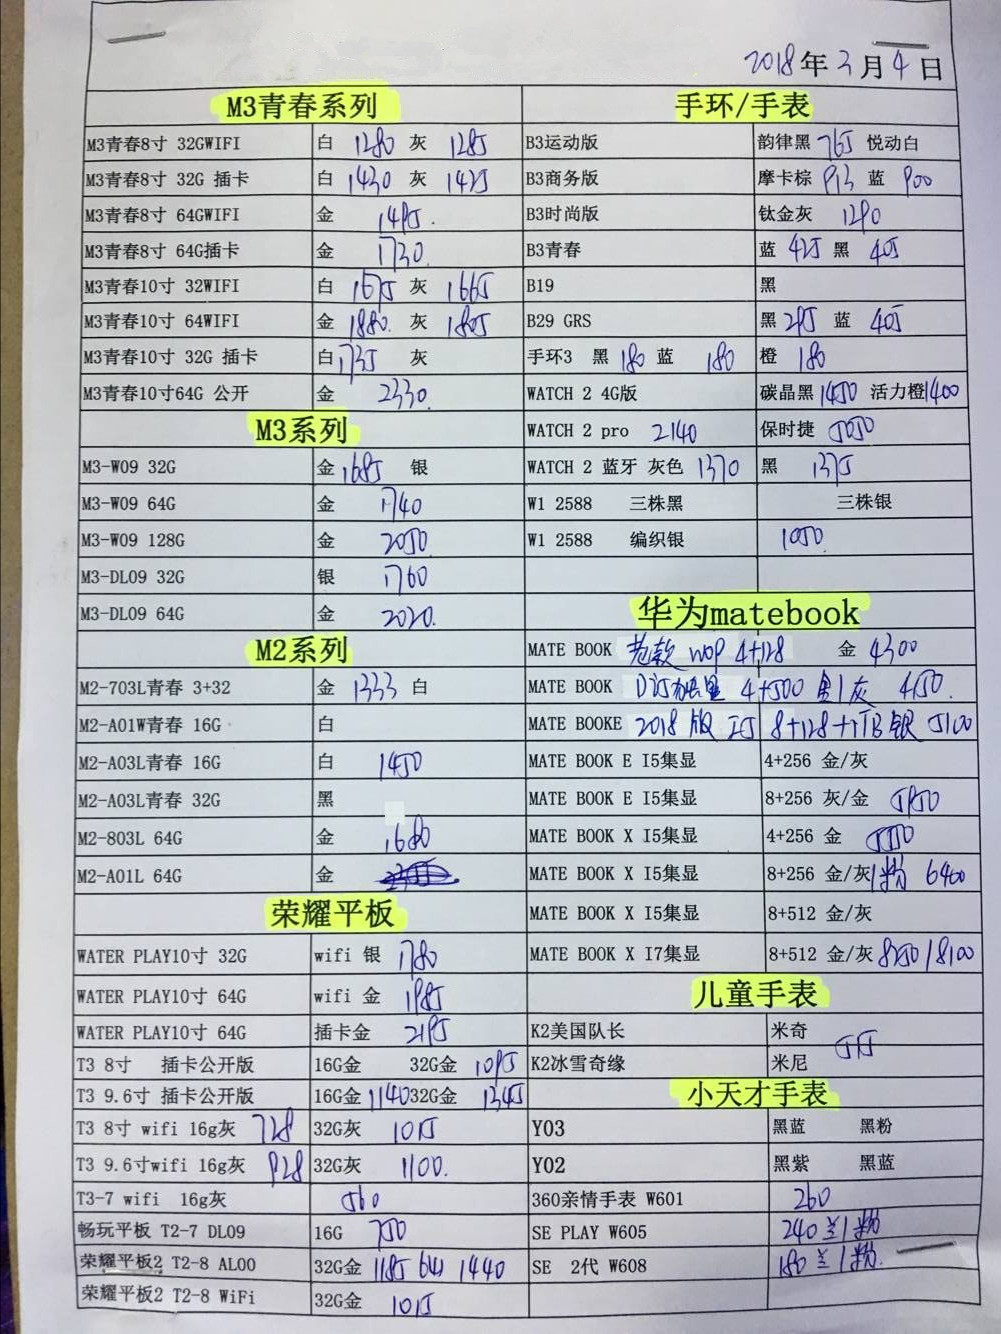 2018年3月4日
M3青春系列 手环/手表
M3青春8寸 32GWIFI 白 1280 灰 1285 B3运动版 韵律黑 765 悦动白
M3青春8寸 32G 插卡 白 1430 灰 1425 B3商务版 摩卡棕 913 蓝 900
M3青春8寸 64GWIFI 金 1495. B3时尚版 钛金灰 1290
M3青春8寸 64G插卡 金 1730. B3青春 蓝 425 黑 405
M3青春10寸 32WIFI 白 1675 灰 1665 B19 黑
M3青春10寸 64WIFI 金 1880. 灰 1805 B29 GRS 黑 295 蓝 405
M3青春10寸 32G 插卡 白 1735 灰 手环3 黑 180 蓝 180 橙 180
M3青春10寸64G 公开 金 2330. WATCH 2 4G版 碳晶黑 1450 活力橙 1400
M3系列 WATCH 2 pro 2140 保时捷 5050
M3-W09 32G 金 1685 银 WATCH 2 蓝牙 灰色 1370 黑 1375
M3-W09 64G 金 1740 W1 2588 三株黑 三株银
M3-W09 128G 金 2050. W1 2588 编织银 1050.
M3-DL09 32G 银 1760
M3-DL09 64G 金 2020. 华为matebook
M2系列 MATE BOOK 老款 4+128 金 4300
M2-703L青春 3+32 金 1333 白 MATE BOOK D 4+500 灰
M2-A01W青春 16G 白 MATE BOOKE 2018 版 I5 8+128+1TB 银 5100
M2-A03L青春 16G 白 1450 MATE BOOK E I5集显 4+256 金/灰
M2-A03L青春 32G 黑 MATE BOOK E I5集显 8+256 灰/金 5950
M2-803L 64G 金 MATE BOOK X I5集显 4+256 金
M2-A01L 64G 金 MATE BOOK X I5集显 8+256 金/灰/粉 6400
荣耀平板 MATE BOOK X I5集显 8+512 金/灰
WATER PLAY10寸 32G wifi 银 1780 MATE BOOK X I7集显 8+512 金/灰 8250/8100
WATER PLAY10寸 64G wifi 金 1985 儿童手表
WATER PLAY10寸 64G 插卡金 2195 K2美国队长 米奇
T3 8寸 插卡公开版 16G金 32G金 1095 K2冰雪奇缘 米尼 515
T3 9.6寸 插卡公开版 16G金 1140 32G金 1345 小天才手表
T3 8寸 wifi 16g灰 728 32G灰 1015 Y03 黑蓝 黑粉
T3 9.6寸wifi 16g灰 928 32G灰 1100. Y02 黑紫 黑蓝
T3-7 wifi 16g灰 560 360亲情手表 W601 260
畅玩平板 T2-7 DL09 16G 750 SE PLAY W605 240 兰/粉
荣耀平板2 T2-8 AL00 32G金 1185 64G 1440 SE 2代 W608 180 兰/粉.
荣耀平板2 T2-8 WiFi 32G金 1015